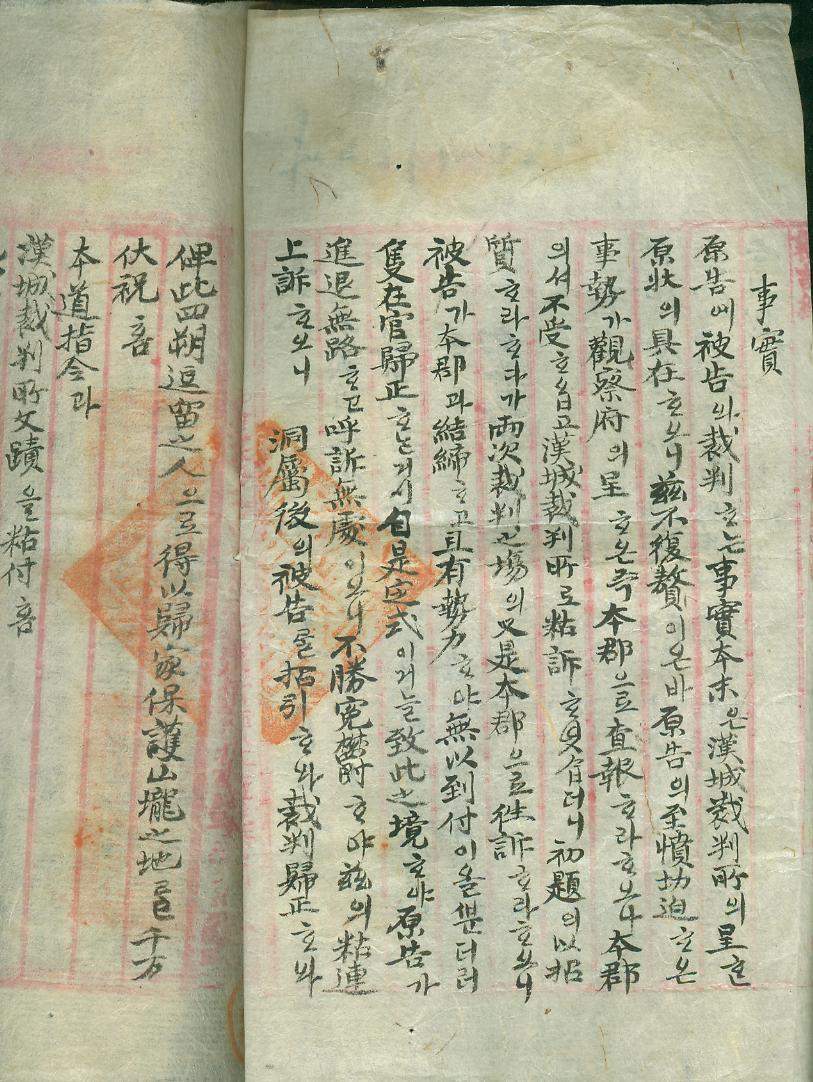 事實
原告에 被告의 裁判ᄒᆞᄂᆞᆫ 事實本末은 漢城裁判所의 呈ᄒᆞᆫ
原狀의 具在ᄒᆞ오니 玆不復贅이온바 原告의 至憤切迫ᄒᆞ온
事勢가 觀察府의 呈ᄒᆞ온즉 本郡으로 査報ᄒᆞ라 ᄒᆞ오나 本郡
의셔 不受ᄒᆞ옵고 漢城裁判所로 粘訴ᄒᆞ엿ᄉᆞᆸ더니 初題의 以招
質ᄒᆞ라 ᄒᆞ다가 兩次裁判之場의 又是本郡으로 往訴ᄒᆞ라 ᄒᆞ오니
被告가 本郡과 結締ᄒᆞ고 且有勢力ᄒᆞ야 無以到付이올ᄲᅮᆫ더러
隻在官歸正ᄒᆞᄂᆞᆫ거시 自是定式이거늘 致此之境ᄒᆞ야 原告가
進退無路ᄒᆞ고 呼訴無處이오니 不勝寃鬱ᄒᆞ야 玆의 粘連
上訴ᄒᆞ오니
洞屬後의 被告를 招引ᄒᆞ와 裁判歸正ᄒᆞ와
俾此四朔逗留之人으로 得以歸家保護山壠之地로 千万
伏祝喜
本道指令과
漢城裁判所文蹟을 粘付喜